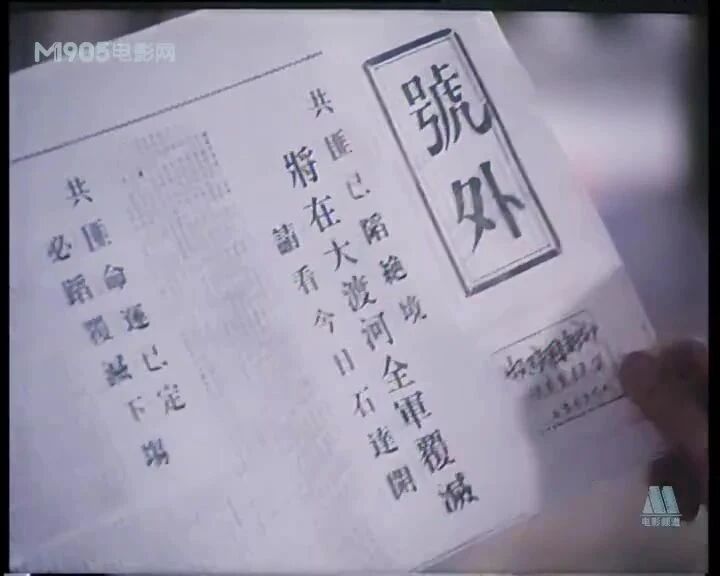 M1905电影网
號外
共匪已陷絕境
將在大渡河全軍覆滅
請看今日石達開
共匪命運已定
必蹈覆滅下場
电影频道